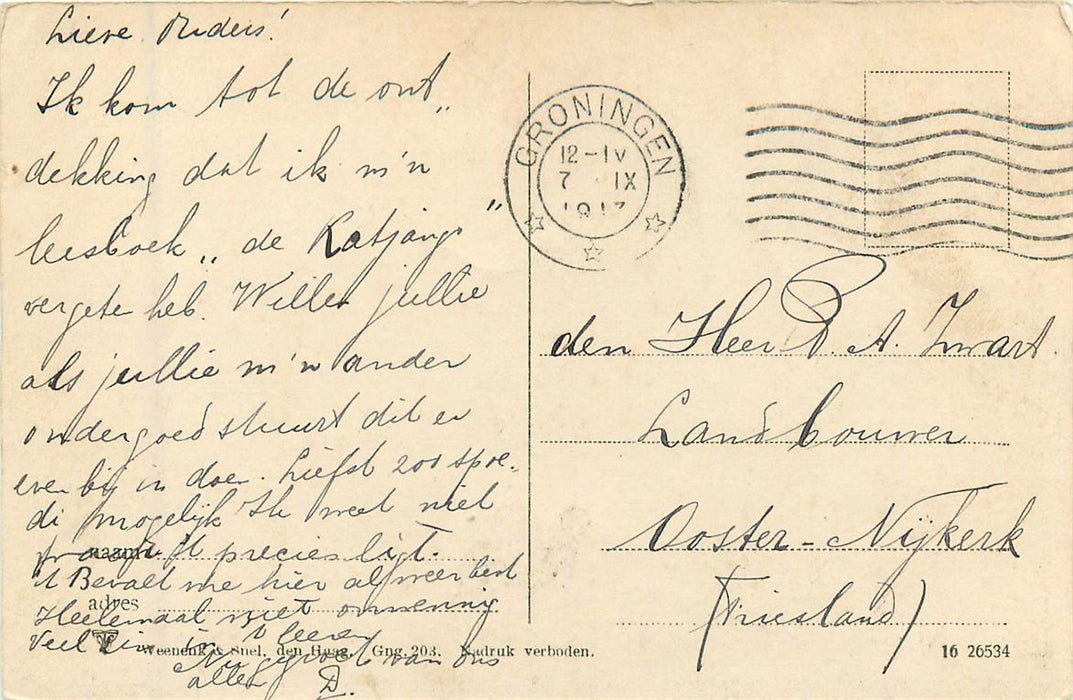 Lieve Ouders!
Ik kom tot de ont„
dekking dat ik m'n
leesboek „de Katjangs"
vergete heb. Willen jullie
als jullie m'n ander
ondergoed stuurt dit er
even bij in doen. Liefst zoo spoe-
di mogelijk Ik weet niet
't precies ligt.
't Bevalt me hier alweer best
Heelemaal niet onwennig
Veel in 't leeren
Nu gegroet van ons
allen D.
naam
adres
Weenenk & Snel, den Haag. Gng. 203. Nadruk verboden.
GRONINGEN
12-IV
7 IX
1917
den Heer P. A. Zwart.
Landbouwer
Ooster-Nijkerk
(Friesland)
16 26534